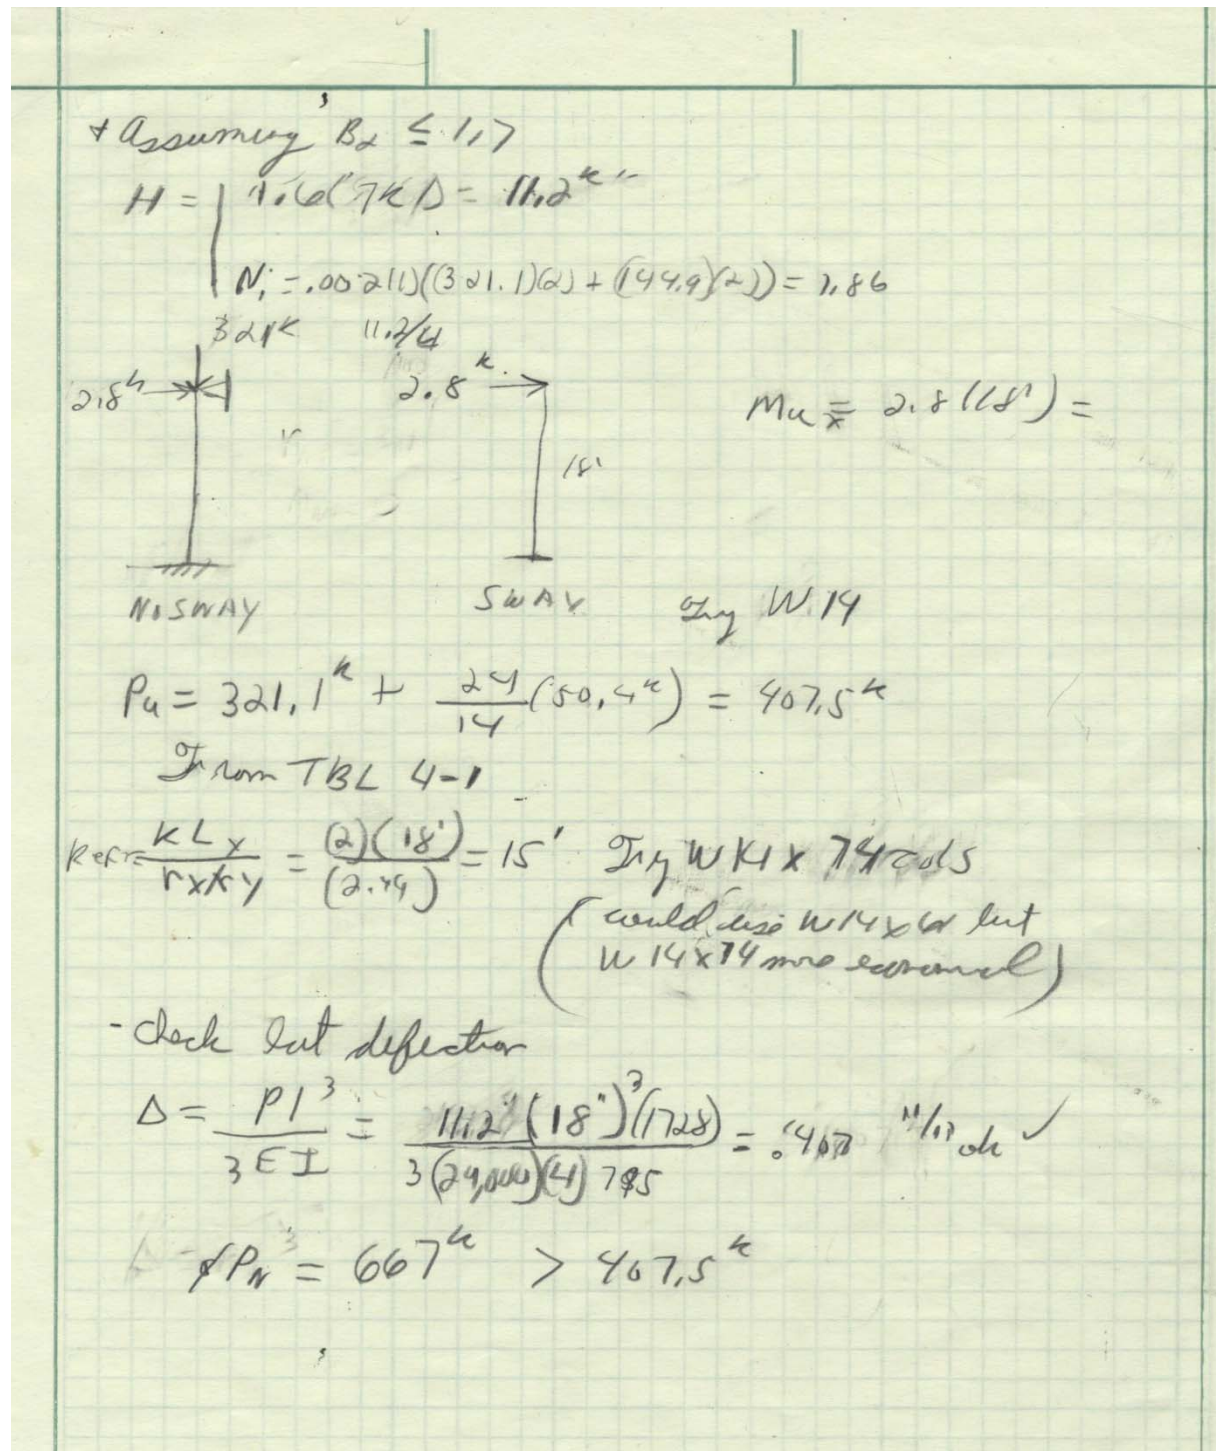 + Assuming B2 ≤ 1.7
H = 1.6(7K) = 11.2k
Ni = .002(1)((321.1)(2) + (144.9)(2)) = 1.86
321K 11.2/4
2.8k 2.8k Mux = 2.8(18') =
18'
NOSWAY SWAY Try W14
Pu = 321.1k + 24/14 (50.4k) = 407.5k
From TBL 4-1
KLx / rx/ry = (2)(18') / (2.44) = 15' Try W14 x 74 cols
( could use W14x but
W14x74 more economical )
- Check lat deflection
Δ = Pl³ / 3EI = 11.2 (18")³(1728) / 3(29,000)(4) 795 = ok ✓
φPN = 667k > 407.5k